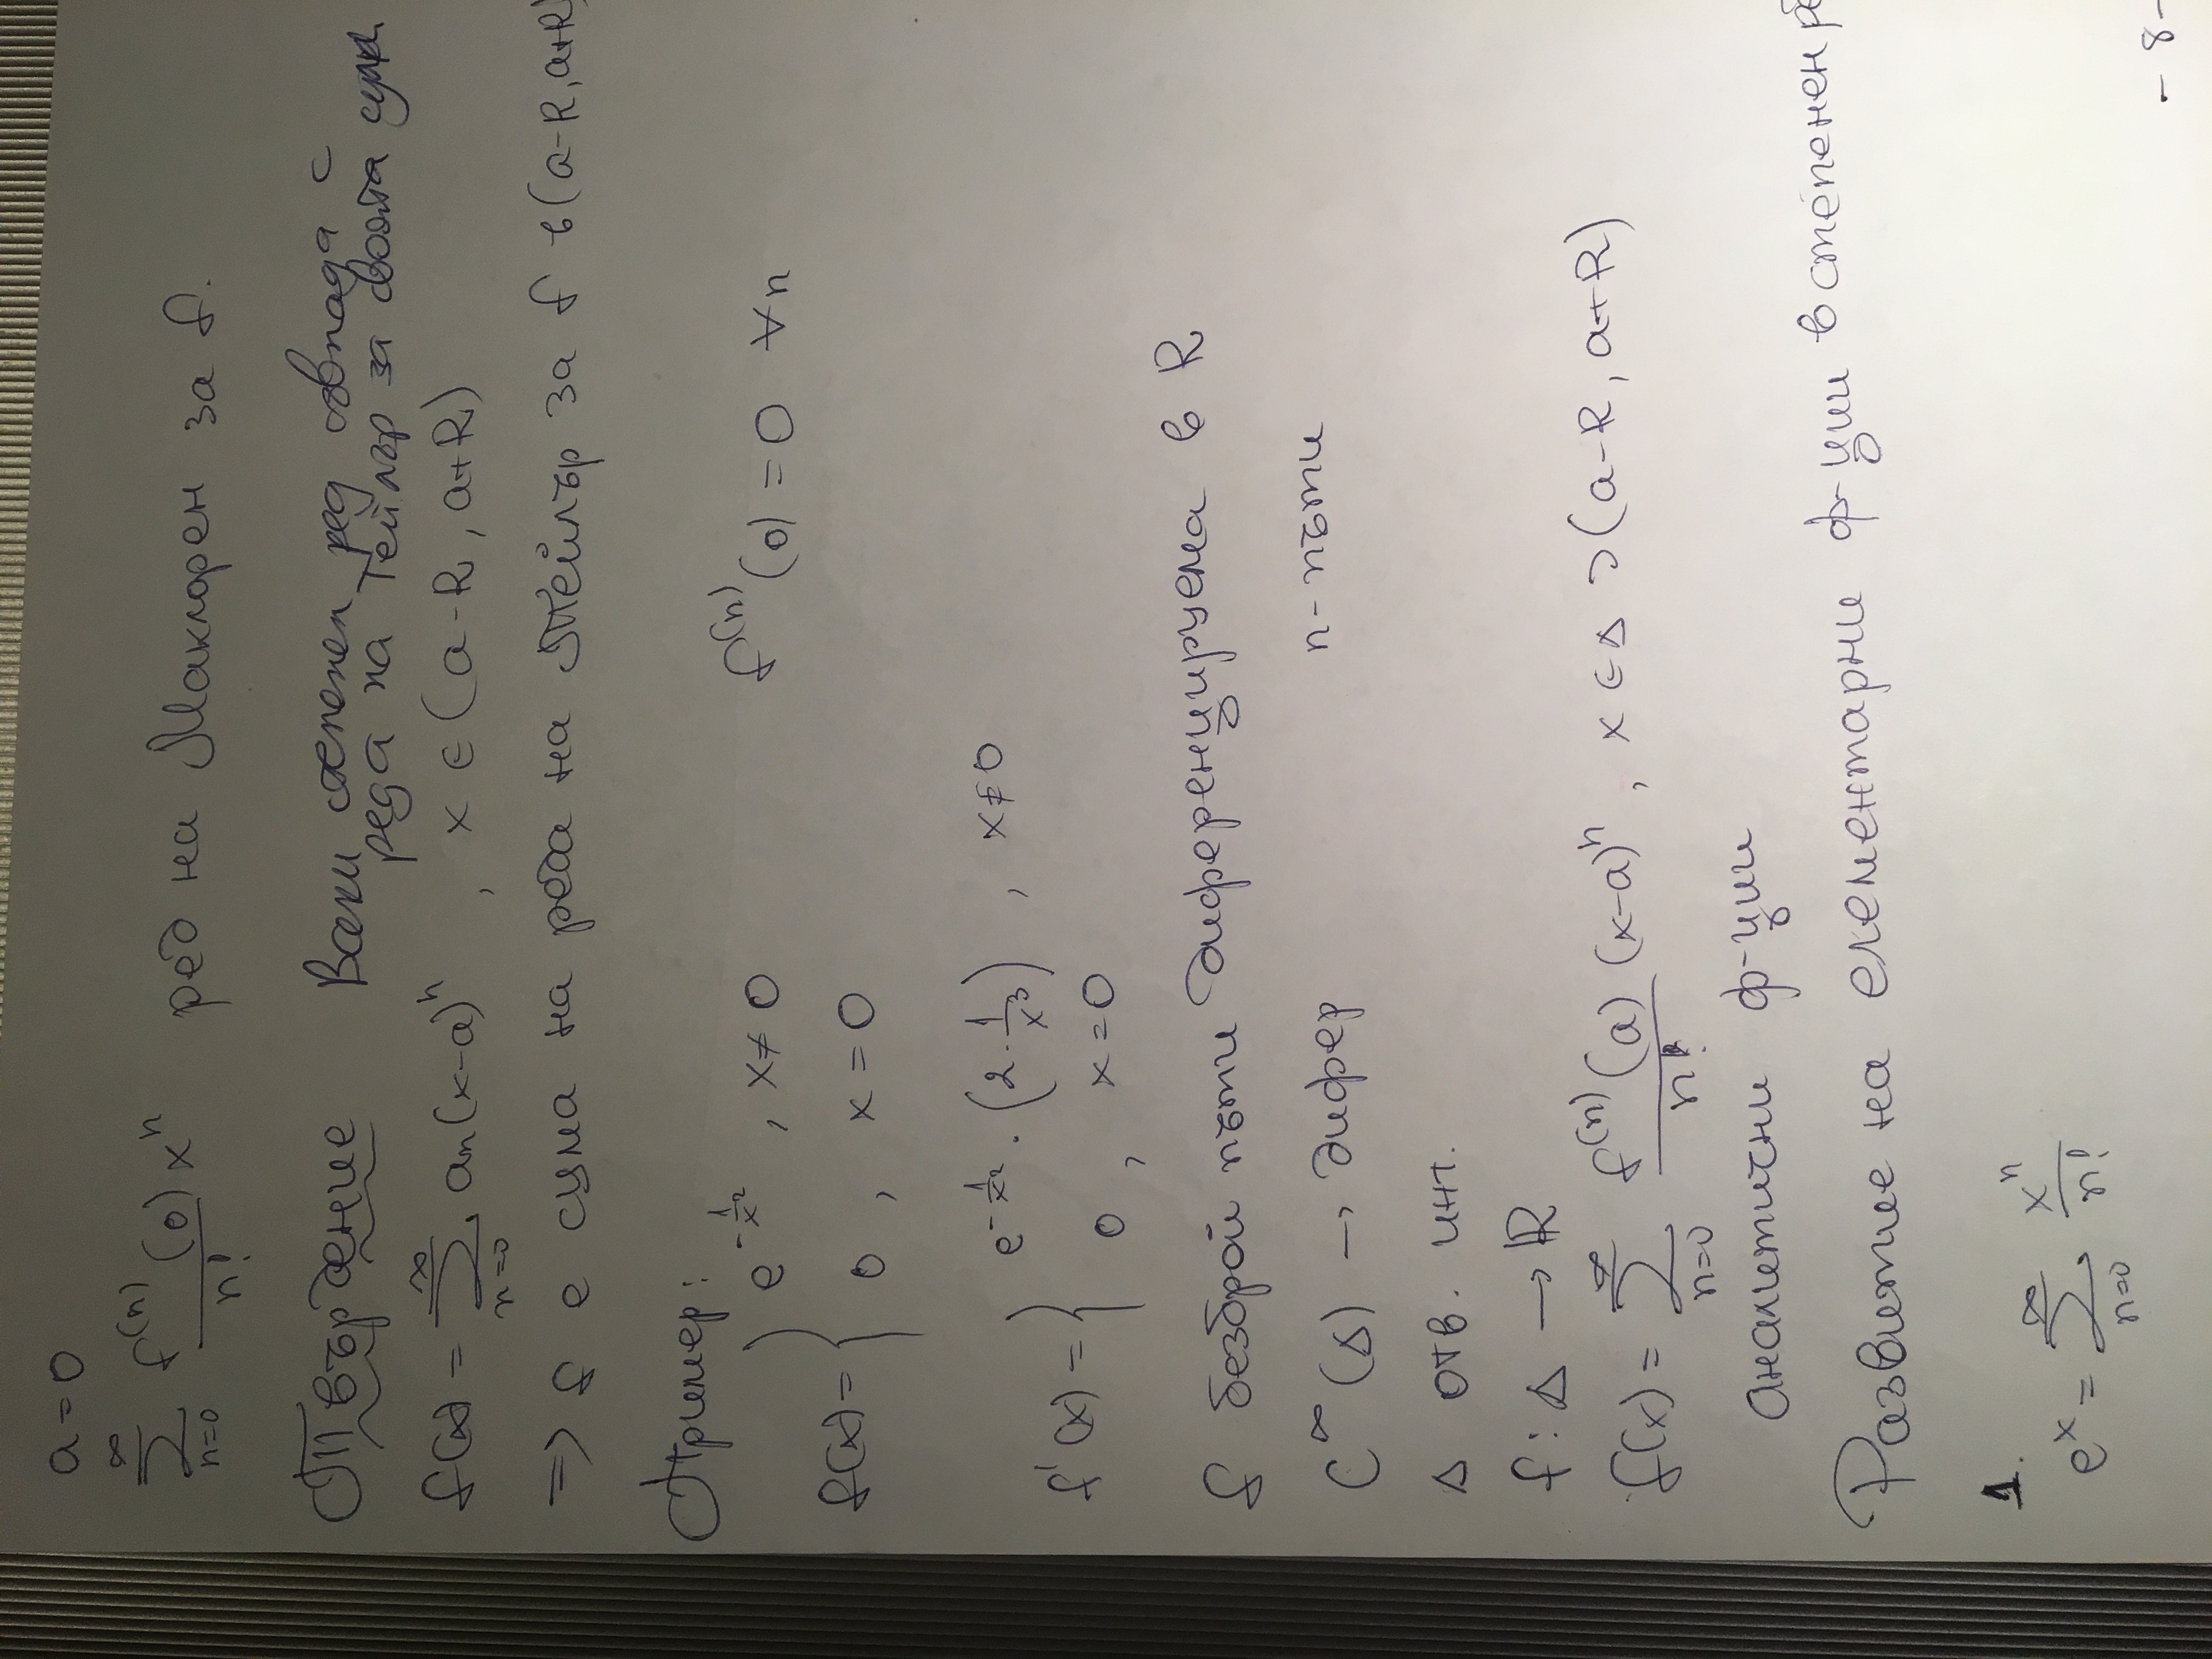 a = 0
∞ ∑ n=0 f⁽ⁿ⁾(0)/n! xⁿ ред на Маклорен за f.
Твърдение Всеки степенен ред съвпада с
реда на Тейлър за своята сума
f(x) = ∞ ∑ n=0 an(x-a)ⁿ , x ∈ (a-R, a+R)
=> f е сума на реда на Тейлър за f в (a-R, a+R)
Пример:
f(x) = { e^(-1/x²) , x ≠ 0
0 , x = 0
f⁽ⁿ⁾(0) = 0 ∀n
f'(x) = { e^(-1/x²) . (2 . 1/x³) , x ≠ 0
0 , x = 0
f безброй пъти диференцируема в R
C^∞ (Δ) → дифер n - пъти
Δ отв. инт.
f : Δ → ℝ
f(x) = ∞ ∑ n=0 f⁽ⁿ⁾(a)/n! (x-a)ⁿ , x ∈ Δ ⊃ (a-R, a+R)
аналитични ф-ции
Развитие на елементарни ф-ции в степенен ре
1.
eˣ = ∞ ∑ n=0 xⁿ/n!
- 8 -